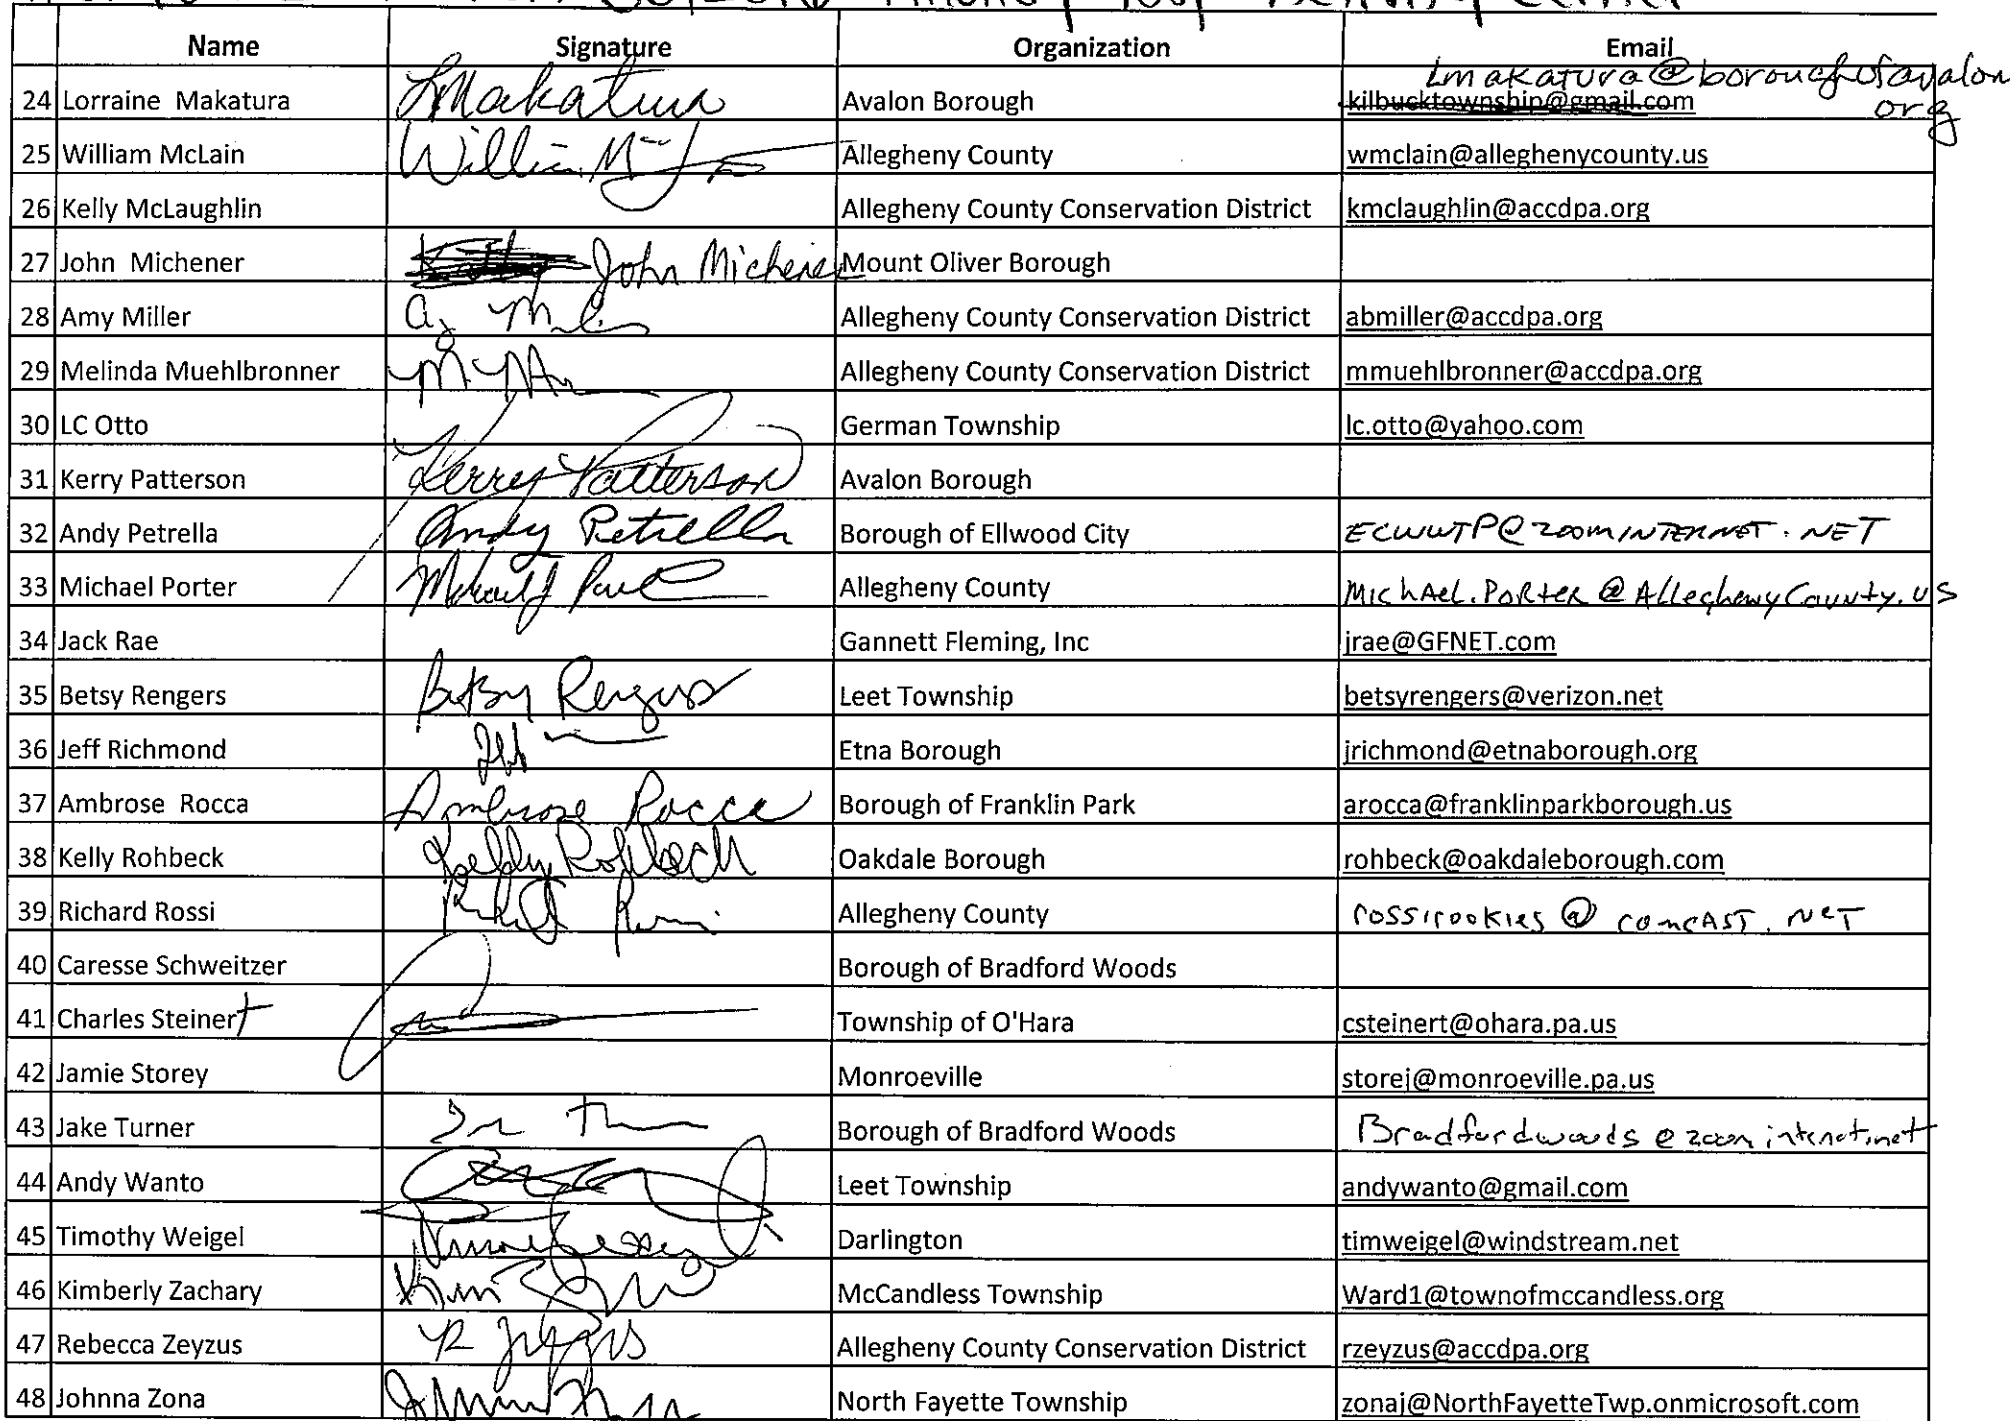 Name Signature Organization Email
Lmakatura@boroughofavalon
org
24 Lorraine Makatura LMakatura Avalon Borough kilbucktownship@gmail.com
25 William McLain William Allegheny County wmclain@alleghenycounty.us
26 Kelly McLaughlin Allegheny County Conservation District kmclaughlin@accdpa.org
27 John Michener John Michener Mount Oliver Borough
28 Amy Miller Allegheny County Conservation District abmiller@accdpa.org
29 Melinda Muehlbronner Allegheny County Conservation District mmuehlbronner@accdpa.org
30 LC Otto German Township lc.otto@yahoo.com
31 Kerry Patterson Kerry Patterson Avalon Borough
32 Andy Petrella Andy Petrella Borough of Ellwood City ECWWTP@ZOOMINTERNET.NET
33 Michael Porter Allegheny County Michael.Porter@AlleghenyCounty.US
34 Jack Rae Gannett Fleming, Inc jrae@GFNET.com
35 Betsy Rengers Betsy Rengers Leet Township betsyrengers@verizon.net
36 Jeff Richmond Etna Borough jrichmond@etnaborough.org
37 Ambrose Rocca Ambrose Rocca Borough of Franklin Park arocca@franklinparkborough.us
38 Kelly Rohbeck Kelly Rohbeck Oakdale Borough rohbeck@oakdaleborough.com
39 Richard Rossi Allegheny County rossirookies@comcast.net
40 Caresse Schweitzer Borough of Bradford Woods
41 Charles Steinert Township of O'Hara csteinert@ohara.pa.us
42 Jamie Storey Monroeville storej@monroeville.pa.us
43 Jake Turner Borough of Bradford Woods Bradfordwoods@zoominternet.net
44 Andy Wanto Leet Township andywanto@gmail.com
45 Timothy Weigel Darlington timweigel@windstream.net
46 Kimberly Zachary Kim McCandless Township Ward1@townofmccandless.org
47 Rebecca Zeyzus R Zeyzus Allegheny County Conservation District rzeyzus@accdpa.org
48 Johnna Zona North Fayette Township zonaj@NorthFayetteTwp.onmicrosoft.com